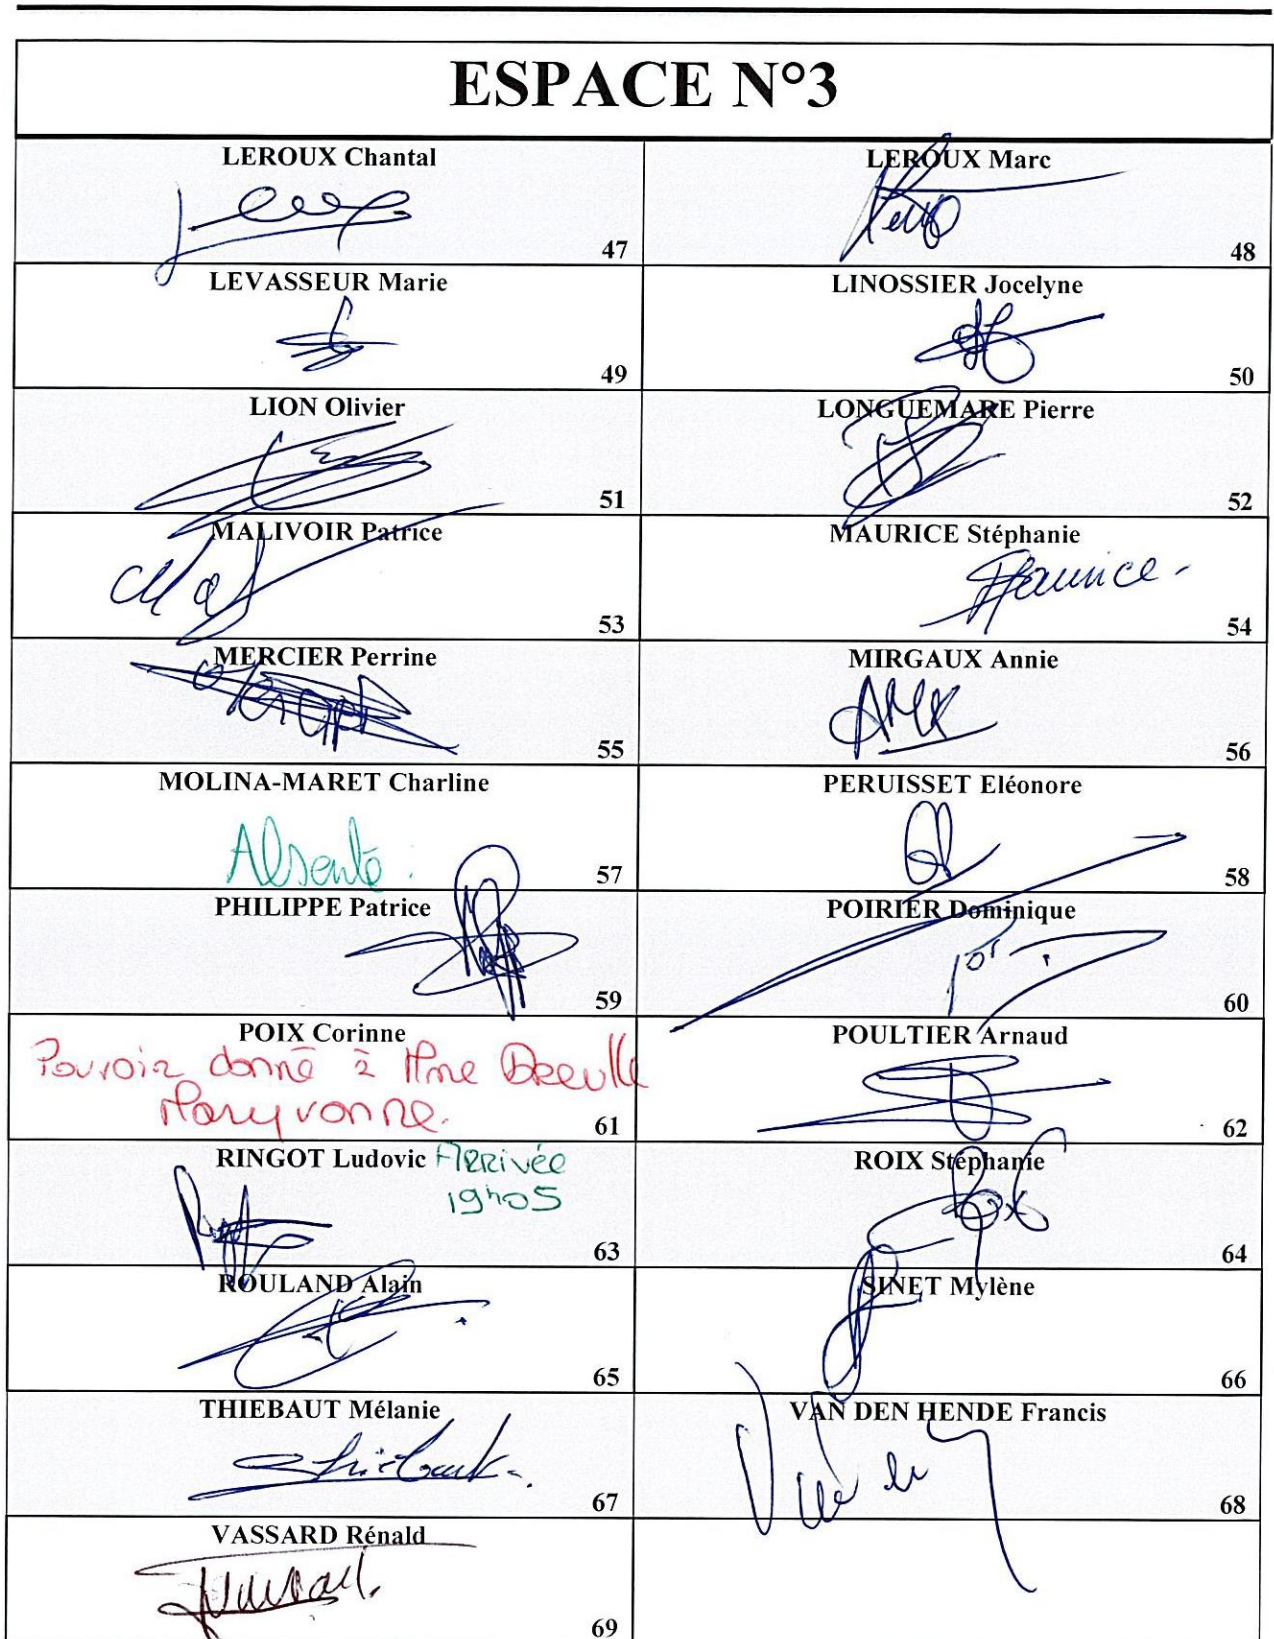 ESPACE N°3
LEROUX Chantal
47
LEROUX Marc
48
LEVASSEUR Marie
49
LINOSSIER Jocelyne
50
LION Olivier
51
LONGUEMARE Pierre
52
MALIVOIR Patrice
53
MAURICE Stéphanie
Maurice
54
MERCIER Perrine
55
MIRGAUX Annie
56
MOLINA-MARET Charline
Absente
57
PERUISSET Eléonore
58
PHILIPPE Patrice
59
POIRIER Dominique
60
POIX Corinne
Pouvoir donné à Mme
Maryvonne.
61
POULTIER Arnaud
62
RINGOT Ludovic Arrivée
19h05
63
ROIX Stéphanie
64
ROULAND Alain
65
SINET Mylène
66
THIEBAUT Mélanie
67
VAN DEN HENDE Francis
68
VASSARD Rénald
69